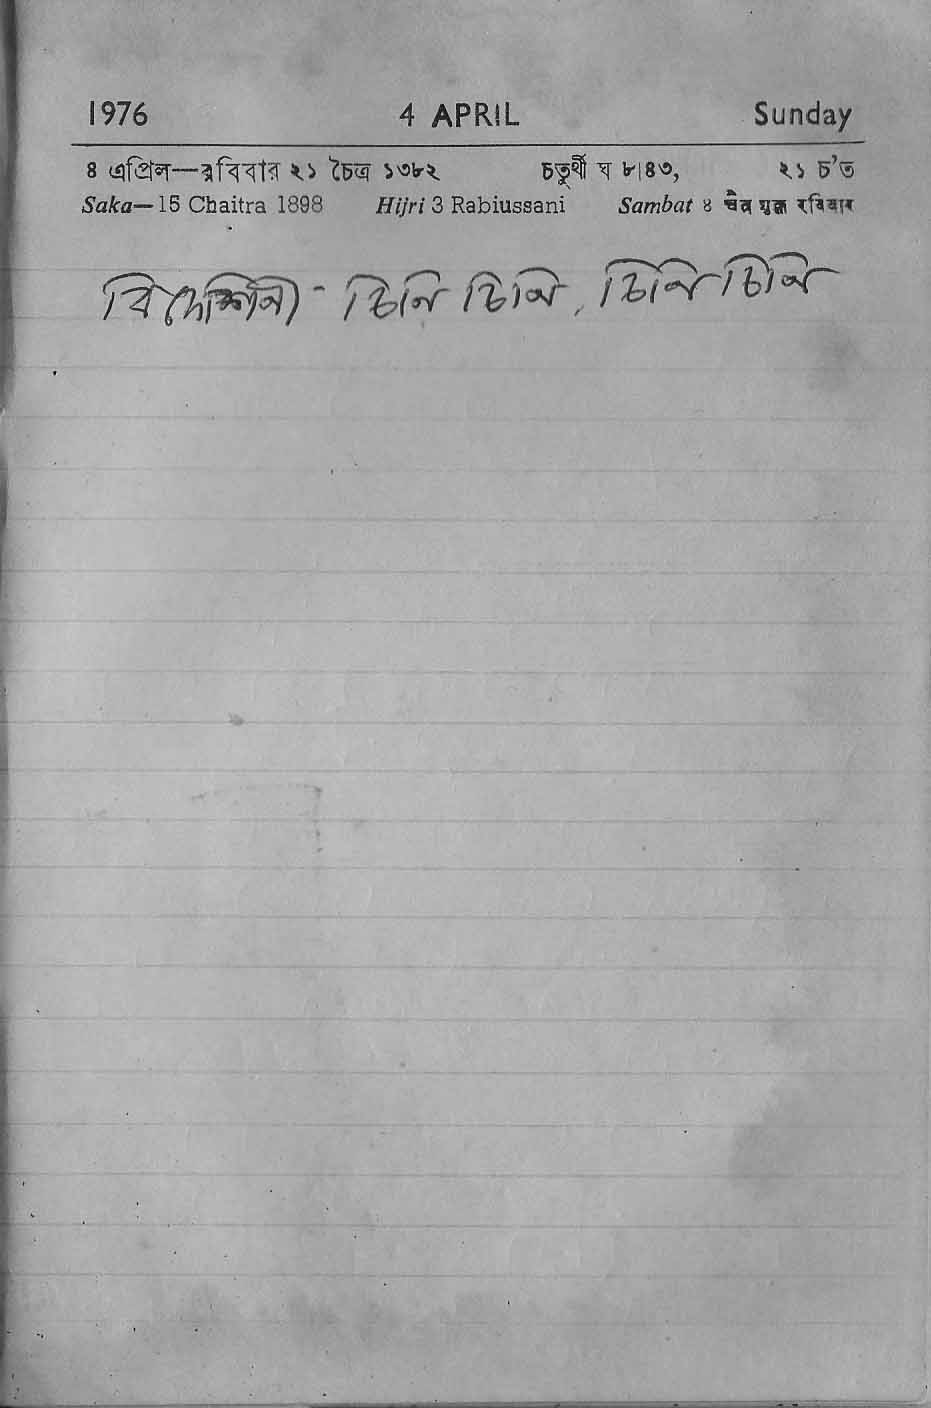 1976 4 APRIL Sunday
৪ এপ্রিল—রবিবার ২১ চৈত্র ১৩৮২ চতুর্থী ঘ ৮।৪৩, ২১ চ'ত
Saka—15 Chaitra 1898 Hijri 3 Rabiussani Sambat ४ चैत्र शुक्ल रविवार
বিদেশিনী - চিনি চিনি, চিনি চিনি